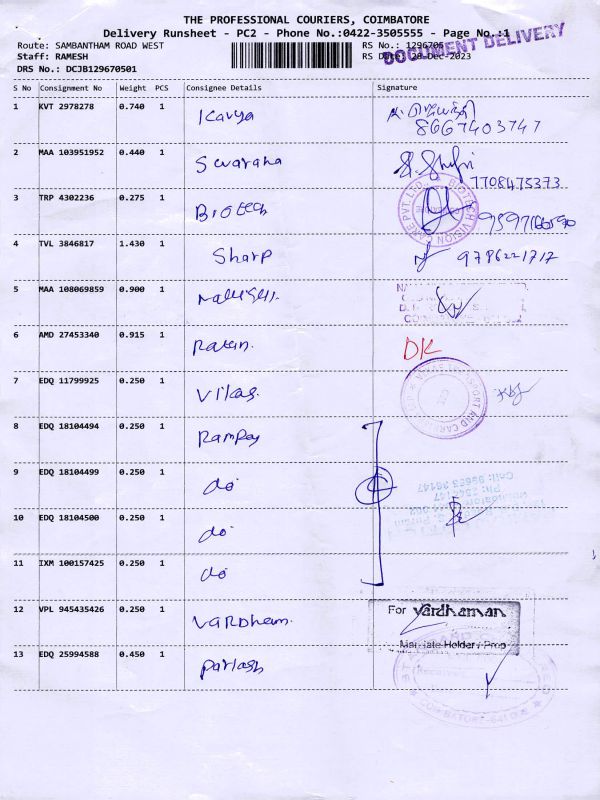 THE PROFESSIONAL COURIERS, COIMBATORE
Delivery Runsheet - PC2 - Phone No.:0422-3505555 - Page No.:1
Route: SAMBANTHAM ROAD WEST RS No.: 1296705
DOCUMENT DELIVERY
Staff: RAMESH RS Date: 28-Dec-2023
DRS No.: DCJB129670501
S No Consignment No Weight PCS Consignee Details Signature
1 KVT 2978278 0.740 1 Kavya
8667403747
2 MAA 103951952 0.440 1 Swaraha
7708475373
3 TRP 4302236 0.275 1 Biotech
BIOTECH VISION CARE PVT. LTD.
4 TVL 3846817 1.430 1 Sharp 9786221717
5 MAA 108069859 0.900 1
6 AMD 27453340 0.915 1 Ratan. DK
7 EDQ 11799925 0.250 1 Vilas.
8 EDQ 18104494 0.250 1
9 EDQ 18104499 0.250 1 do
10 EDQ 18104500 0.250 1 do
11 IXM 100157425 0.250 1 do
12 VPL 945435426 0.250 1 Vardham. For Vardhaman
13 EDQ 25994588 0.450 1